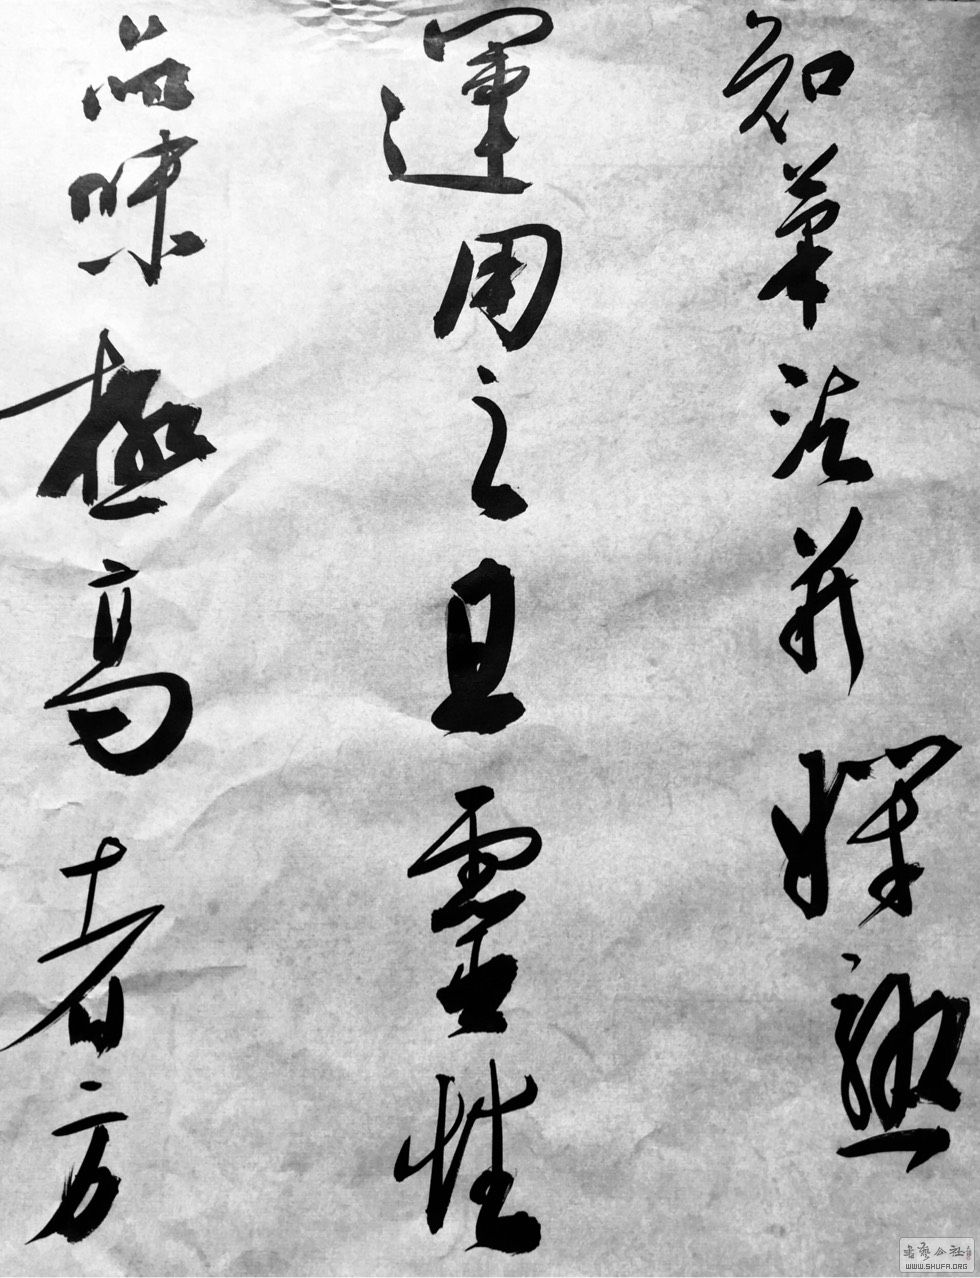 知筆法并嫻熟
運用之且靈性
品味極高者方
書藝公社
WWW.SHUFA.ORG